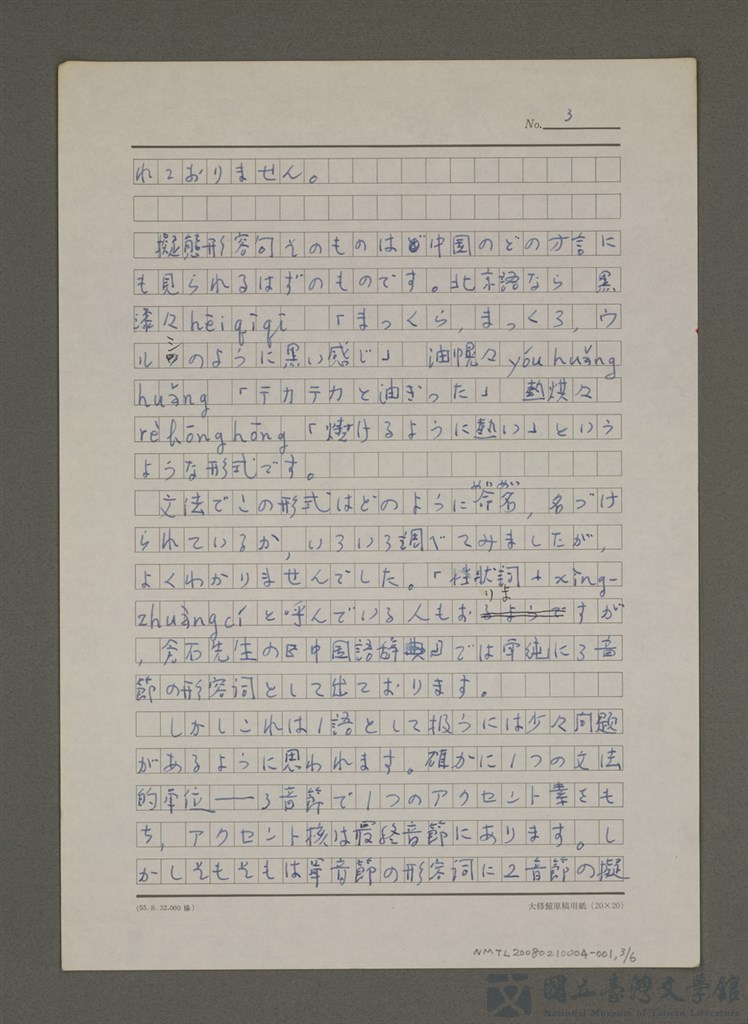 No. 3
れておりません。
擬態形容詞そのものは中国のどの方言に
も見られるはずのものです。北京語なら 黒
漆々hēiqīqī 「まっくら,まっくろ,ウ
ルシのように黒い感じ」 油幌々yóuhuǎng
huǎng 「テカテカと油ぎった」 熱烘々
rèhōnghōng「焼けるように熱い」という
ような形式です。
文法でこの形式はどのように命名,名づけ
られているか,いろいろ調べてみましたが,
よくわかりませんでした。「性狀詞」xìng-
zhuàngcíと呼んでいる人もおりますが
,倉石先生の『中国語辞典』では単純に3音
節の形容詞として出ております。
しかしこれは1語として扱うには少々問題
があるように思われます。確かに1つの文法
的単位——3音節で1つのアクセント素をも
ち,アクセント核は最終音節にあります。し
かしそもそもは単音節の形容詞に2音節の擬
(55.8.32.000 協)
大修館原稿用紙(20×20)
NMTL20080210004-001,3/6
國立臺灣文學館
National Museum of Taiwan Literature